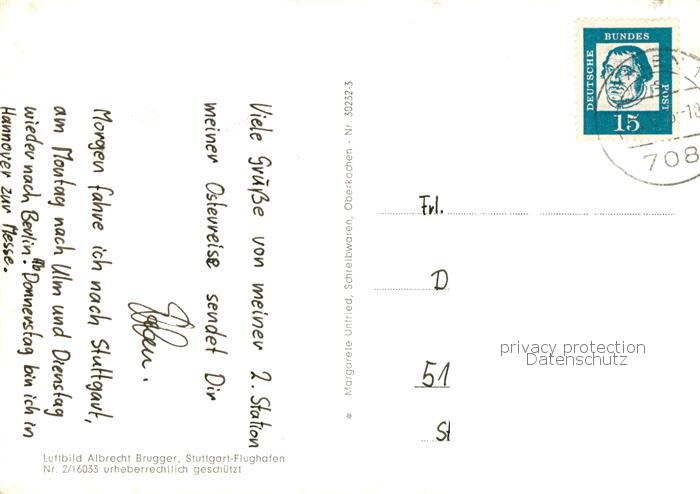 Viele Grüße von meiner 2. Station
meiner Osterreise sendet Dir
Morgen fahre ich nach Stuttgart,
am Montag nach Ulm und Dienstag
wieder nach Berlin. Ab Donnerstag bin ich in
Hannover zur Messe.
Luftbild Albrecht Brugger, Stuttgart-Flughafen
Nr. 2/16033 urheberrechtlich geschützt
* Margarete Unfried, Schreibwaren, Oberkochen - Nr. 30232-3
DEUTSCHE BUNDES POST
15
708
Frl.
D
51
St
privacy protection
Datenschutz